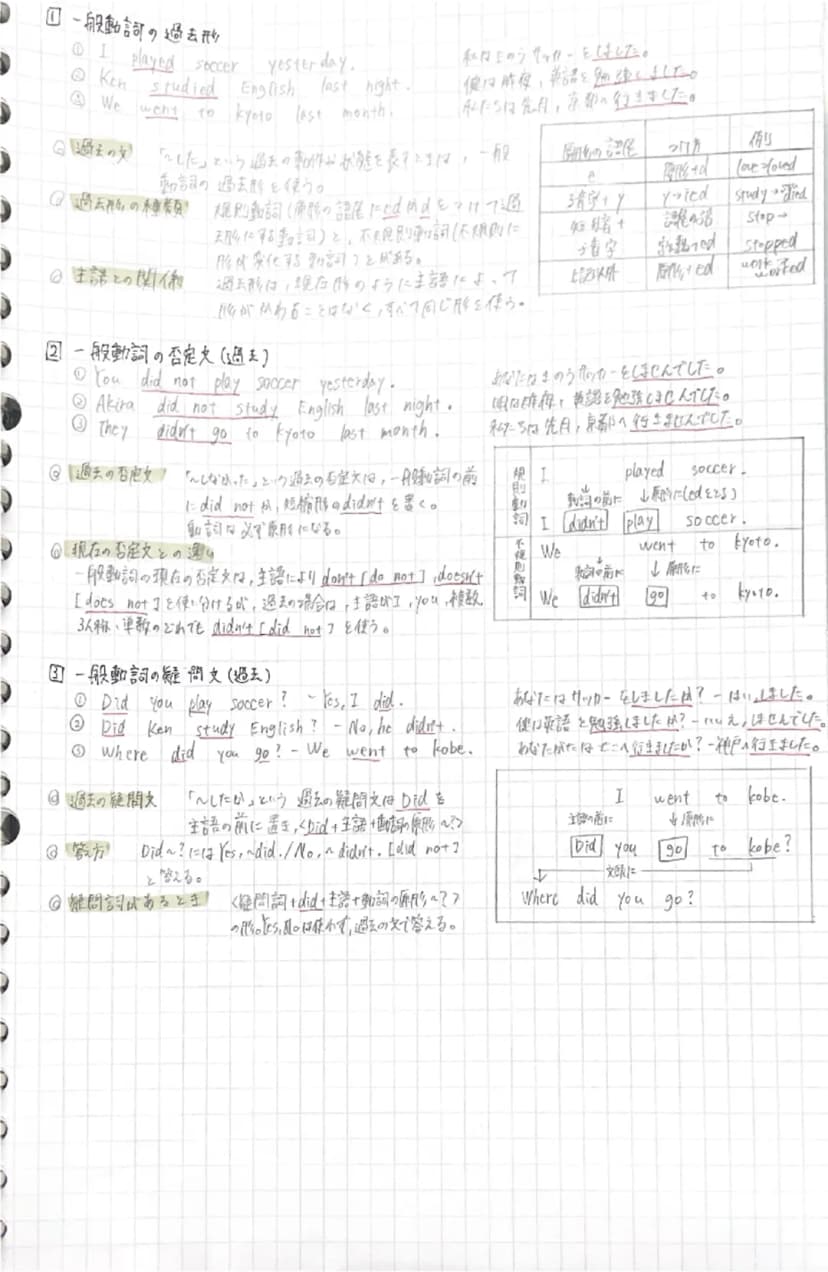 1 一般動詞の過去形
① I played soccer yesterday. 私はきのうサッカーをしました。
② Ken studied English last night. 健は昨夜、英語を勉強しました。
③ We went to kyoto last month. 私たちは先月、京都へ行きました。
過去の文 「〜した」という過去の動作や状態を表すときは、一般
動詞の過去形を使う。
過去形の種類 規則動詞(原形の語尾にedかdをつけて過
去形にする動詞)と、不規則動詞(不規則に
形が変化する動詞)とがある。
主語との関係 過去形は、現在形のように主語によって
形がかわることはなく、すべて同じ形を使う。
原形の語尾 つけ方 例
e 原形+d love→loved
子音字+y y→ied study→
短母音+ 語尾の stop→
子音字 +ed stopped
上記以外 原形+ed work→worked
2 一般動詞の否定文(過去)
① You did not play soccer yesterday. あなたはきのうサッカーをしませんでした。
② Akira did not study English last night. 明は昨夜、英語を勉強しませんでした。
③ They didn't go to kyoto last month. 私たちは先月、京都へ行きませんでした。
過去の否定文 「〜しなかった」という過去の否定文は、一般動詞の前
にdid notか、短縮形のdidn'tを書く。
動詞は必ず原形になる。
現在の否定文との違い
一般動詞の現在の否定文は、主語によりdon't[do not]、doesn't
[does not]を使い分けるが、過去の場合は、主語がI、you、複数、
3人称・単数のどれでもdidn't[did not]を使う。
規則動詞
I played soccer.
↓動詞の前に ↓原形に(edをとる)
I didn't play soccer.
不規則動詞
We went to kyoto.
↓動詞の前に ↓原形に
We didn't go to kyoto.
3 一般動詞の疑問文(過去)
① Did you play soccer? - Yes, I did. あなたはサッカーをしましたか? -はい、しました。
② Did Ken study English? - No, he didn't. 健は英語を勉強しましたか? -いいえ、しませんでした。
③ Where did you go? - We went to kobe. あなたがたはどこへ行きましたか? -神戸へ行きました。
過去の疑問文 「〜したか」という過去の疑問文はDidを
主語の前に置き、<Did+主語+動詞の原形〜?>
答え方 Did〜?にはYes, 〜did./No, 〜didn't.[did not]
と答える。
疑問詞があるとき <疑問詞+did+主語+動詞の原形〜?>
の形。Yes, Noは使わず、過去の文で答える。
I went to kobe.
主語の前に ↓原形に
Did you go to kobe?
文頭に
Where did you go?